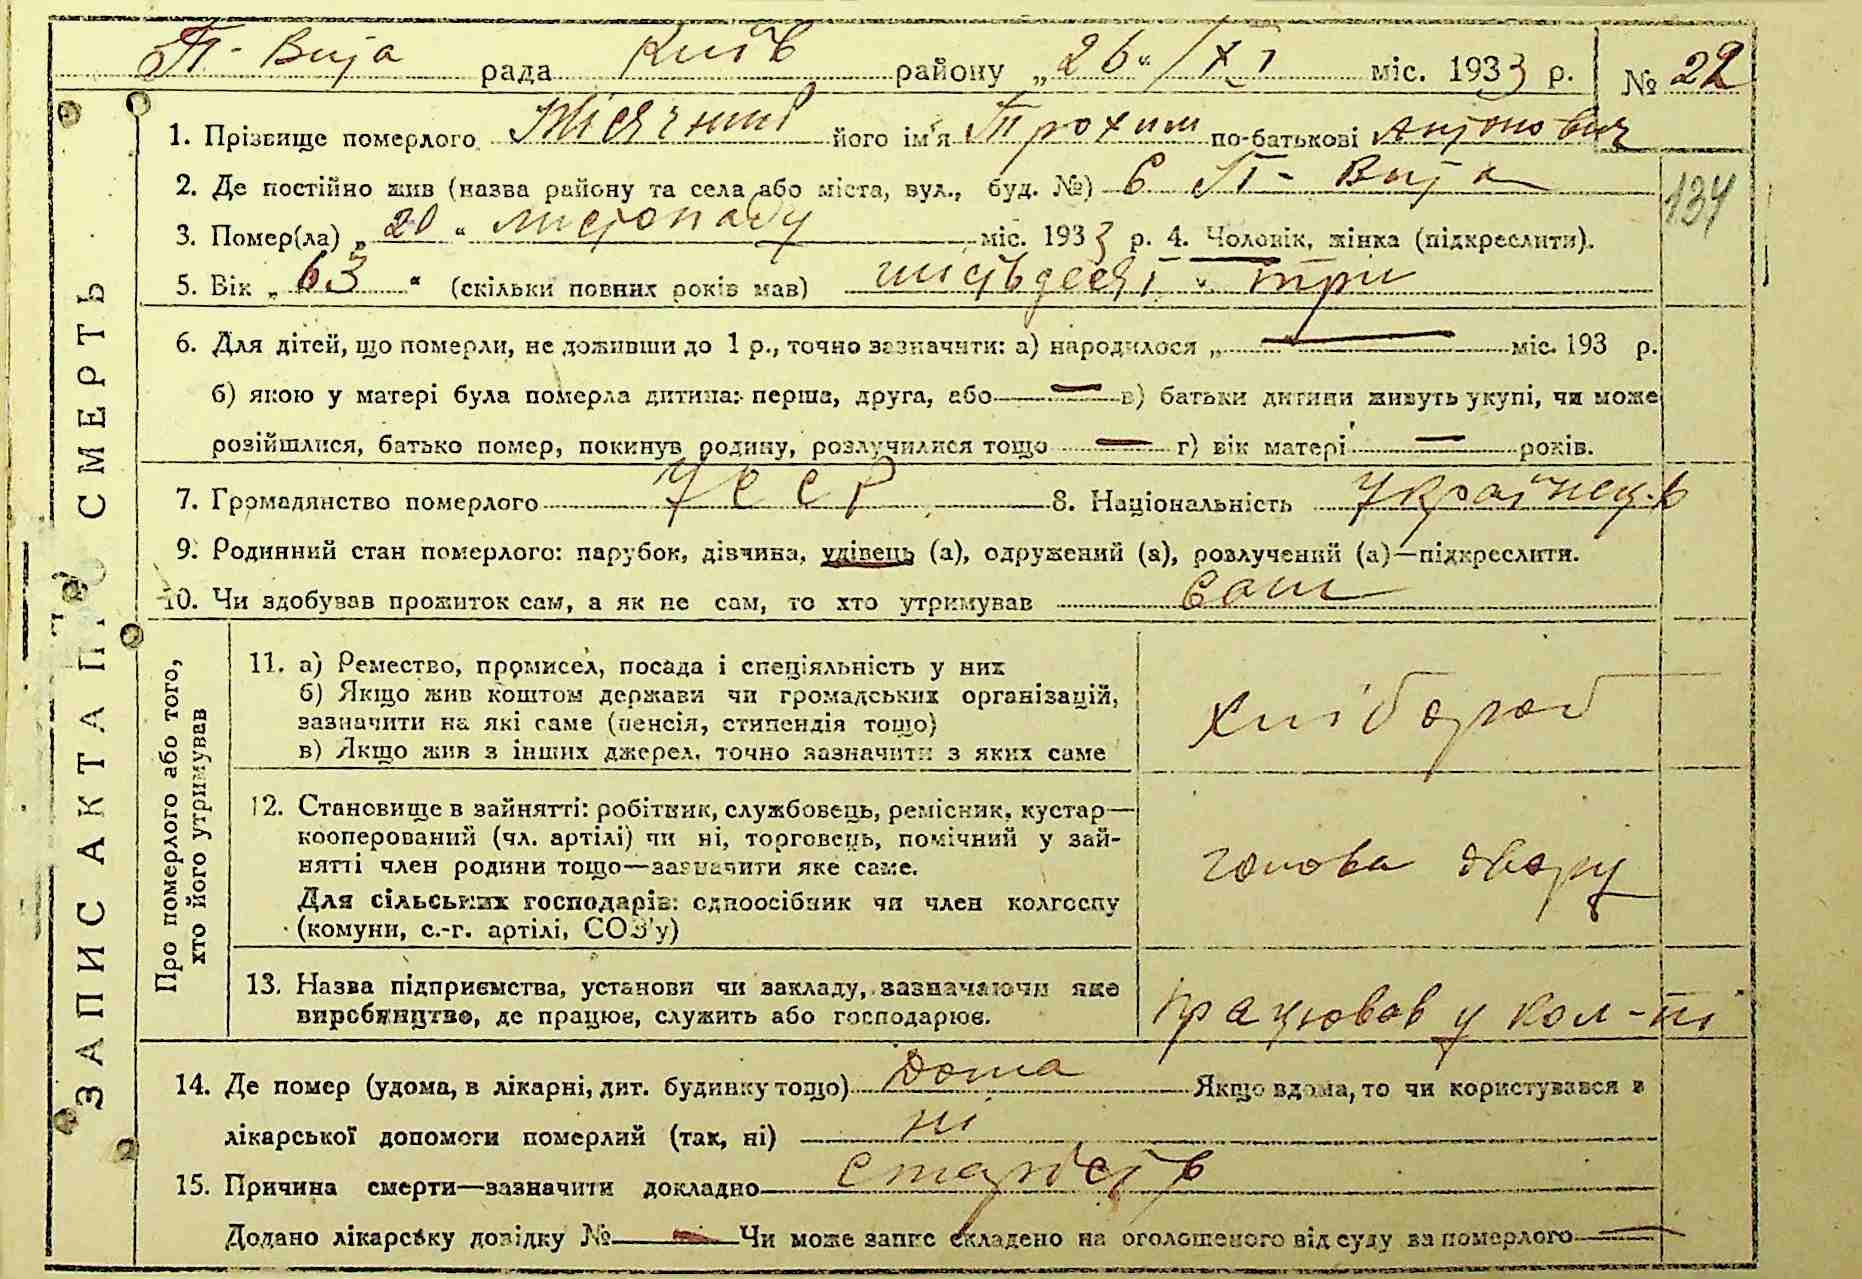 П- Вита рада Київ району „26“ /XI міс. 1933 р. № 22
1. Прізвище померлого його ім'я Трохим по-батькові Антонович
2. Де постійно жив (назва району та села або міста, вул., буд. №) с П- Вита
134
3. Помер(ла) „20“ листопаду міс. 1933 р. 4. Чоловік, жінка (підкреслити).
5. Вік „63“ (скільки повних років мав) шістьдесят три
6. Для дітей, що померли, не доживши до 1 р., точно зазначити: а) народилося „ “ міс. 193 р.
б) якою у матері була померла дитина: перша, друга, або — в) батьки дитини живуть укупі, чи може
розійшлися, батько помер, покинув родину, розлучилися тощо — г) вік матері — років.
7. Громадянство померлого УССР 8. Національність Українець
9. Родинний стан померлого: парубок, дівчина, удівець (а), одружений (а), розлучений (а)—підкреслити.
10. Чи здобував прожиток сам, а як не сам, то хто утримував сам
ЗАПИС АКТА ПРО СМЕРТЬ
Про померлого або того,
хто його утримував
11. а) Ремество, промисел, посада і спеціяльність у них
б) Якщо жив коштом держави чи громадських організацій,
зазначити на які саме (пенсія, стипендія тощо)
в) Якщо жив з інших джерел, точно зазначити з яких саме
хлібороб
12. Становище в зайнятті: робітник, службовець, ремісник, кустар—
кооперований (чл. артілі) чи ні, торговець, помічний у зай-
нятті член родини тощо—зазначити яке саме.
Для сільських господарів: одноосібник чи член колгоспу
(комуни, с.-г. артілі, СОЗ'у)
голова двору
13. Назва підприємства, установи чи закладу, зазначаючи яке
виробництво, де працює, служить або господарює.
працював у кол-пі
14. Де помер (удома, в лікарні, дит. будинку тощо) дома Якщо вдома, то чи користувався з
лікарської допомоги померлий (так, ні) ні
15. Причина смерти—зазначити докладно старість
Додано лікарську довідку № — Чи може запис складено на оголошеного від суду за померлого —